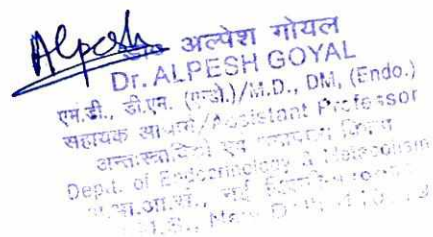 Alpesh
डॉ० अल्पेश गोयल
Dr. ALPESH GOYAL
एम.डी., डी.एम. (एन्डो.)/M.D., DM, (Endo.)
सहायक आचार्य/Assistant Professor
एवं विभाग
Deptt. of Endocrinology & Metabolism
नई
New